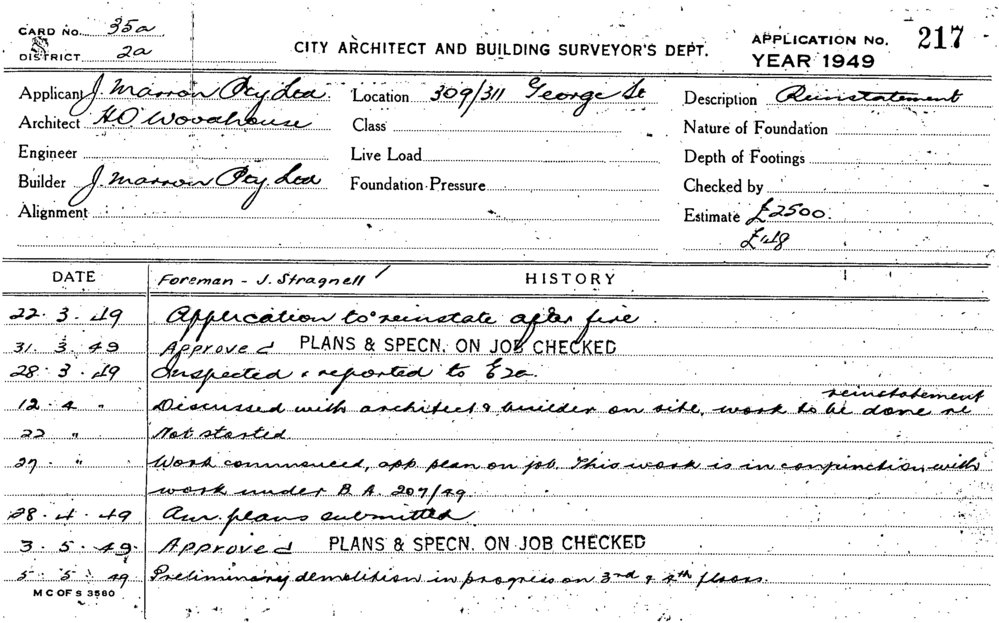 CARD NO. 35a
DISTRICT 2a
CITY ARCHITECT AND BUILDING SURVEYOR'S DEPT.
APPLICATION No. 217
YEAR 1949
Applicant J. Marron Pty Ltd Location 309/311 George St Description Reinstatement
Architect H O Woodhouse Class Nature of Foundation
Engineer Live Load Depth of Footings
Builder J. Marron Pty Ltd Foundation Pressure Checked by
Alignment Estimate £2500.
£48
DATE Foreman - J. Stragnell HISTORY
22. 3. 49 Application to reinstate after fire.
31. 3. 49 Approved PLANS & SPECN. ON JOB CHECKED
28. 3. 49 Inspected & reported to E2a.
reinstatement
12. 4 " Discussed with architect & builder on site, work to be done re
22 " Not started
27. " Work commenced, app. plan on job. This work is in conjunction with
work under B.A. 207/49.
28. 4. 49 Am. plans submitted
3. 5. 49. Approved PLANS & SPECN. ON JOB CHECKED
5. 5. 49 Preliminary demolition in progress on 3rd & 4th floors.
M C OF S 3580